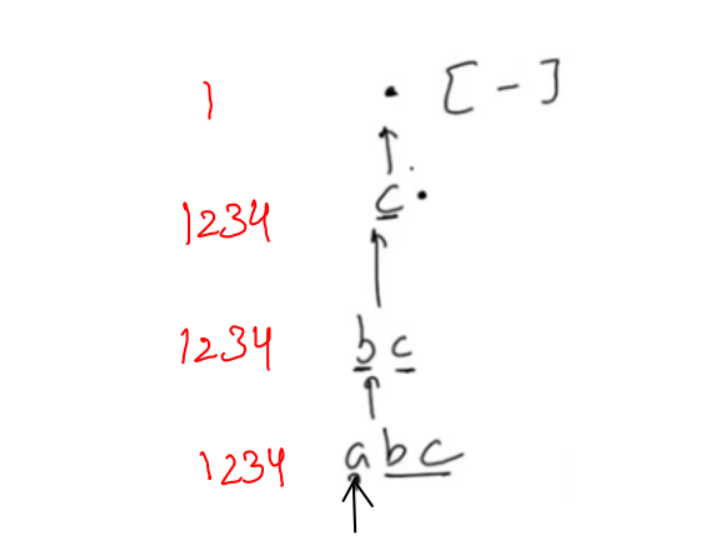 1 . [ - ]
1234 c .
1234 b c
1234 a b c